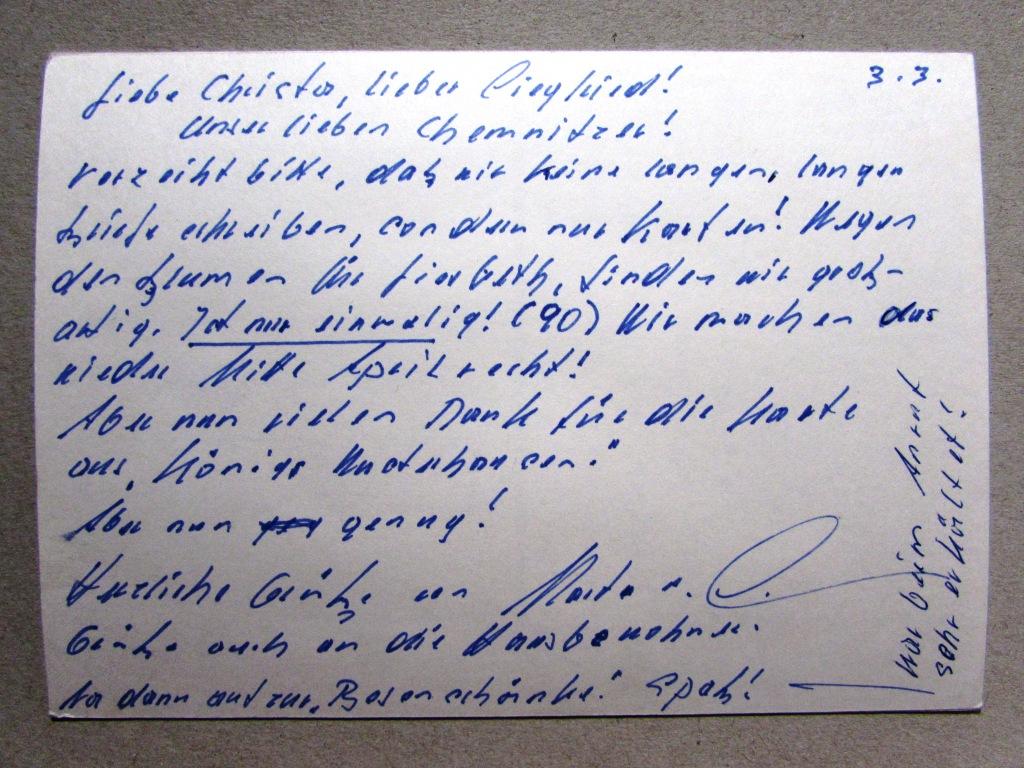 3.3.
Liebe Christa, lieber Siegfried!
Unser lieben Chemnitzer!
Verzeiht bitte, daß wir keine langen, langen
Briefe schreiben, sondern nur Karten! Wegen
den Blumen für Lisbeth, finden wir groß-
artig. Ist nur einmalig! (90) Wir machen das
wieder Mitte April recht!
Aber nun vielen Dank für die Karte
aus „Königs Wusterhausen."
Aber nun genug!
Herzliche Grüße von Marta u. C.
Grüße auch an die Hausbewohner.
Na dann auf zur „Rosenschänke." Spaß!
War beim Arzt
sehr erkältet!